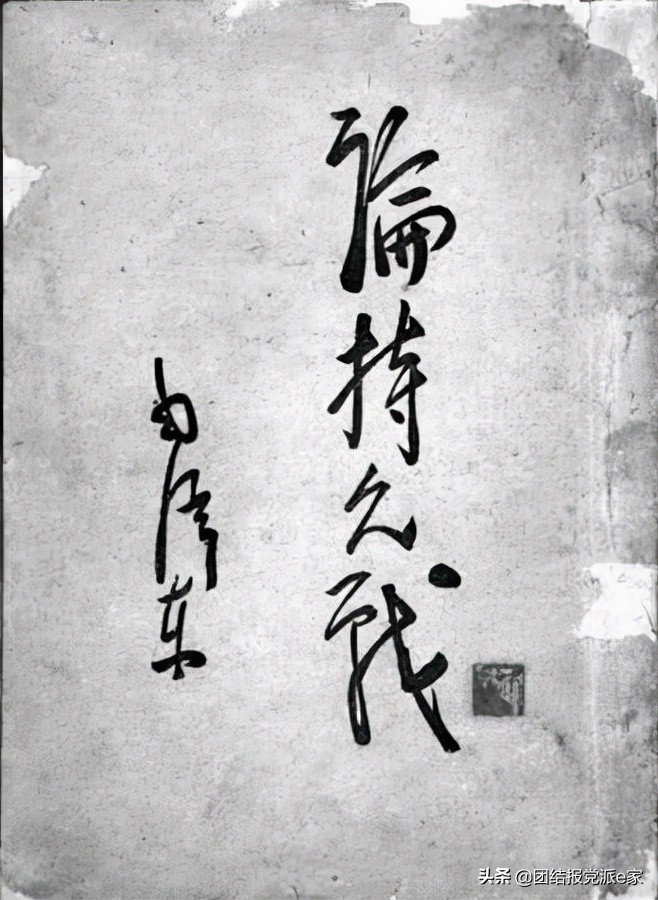 論持久戰
毛澤东
头条 @团结报党派e家